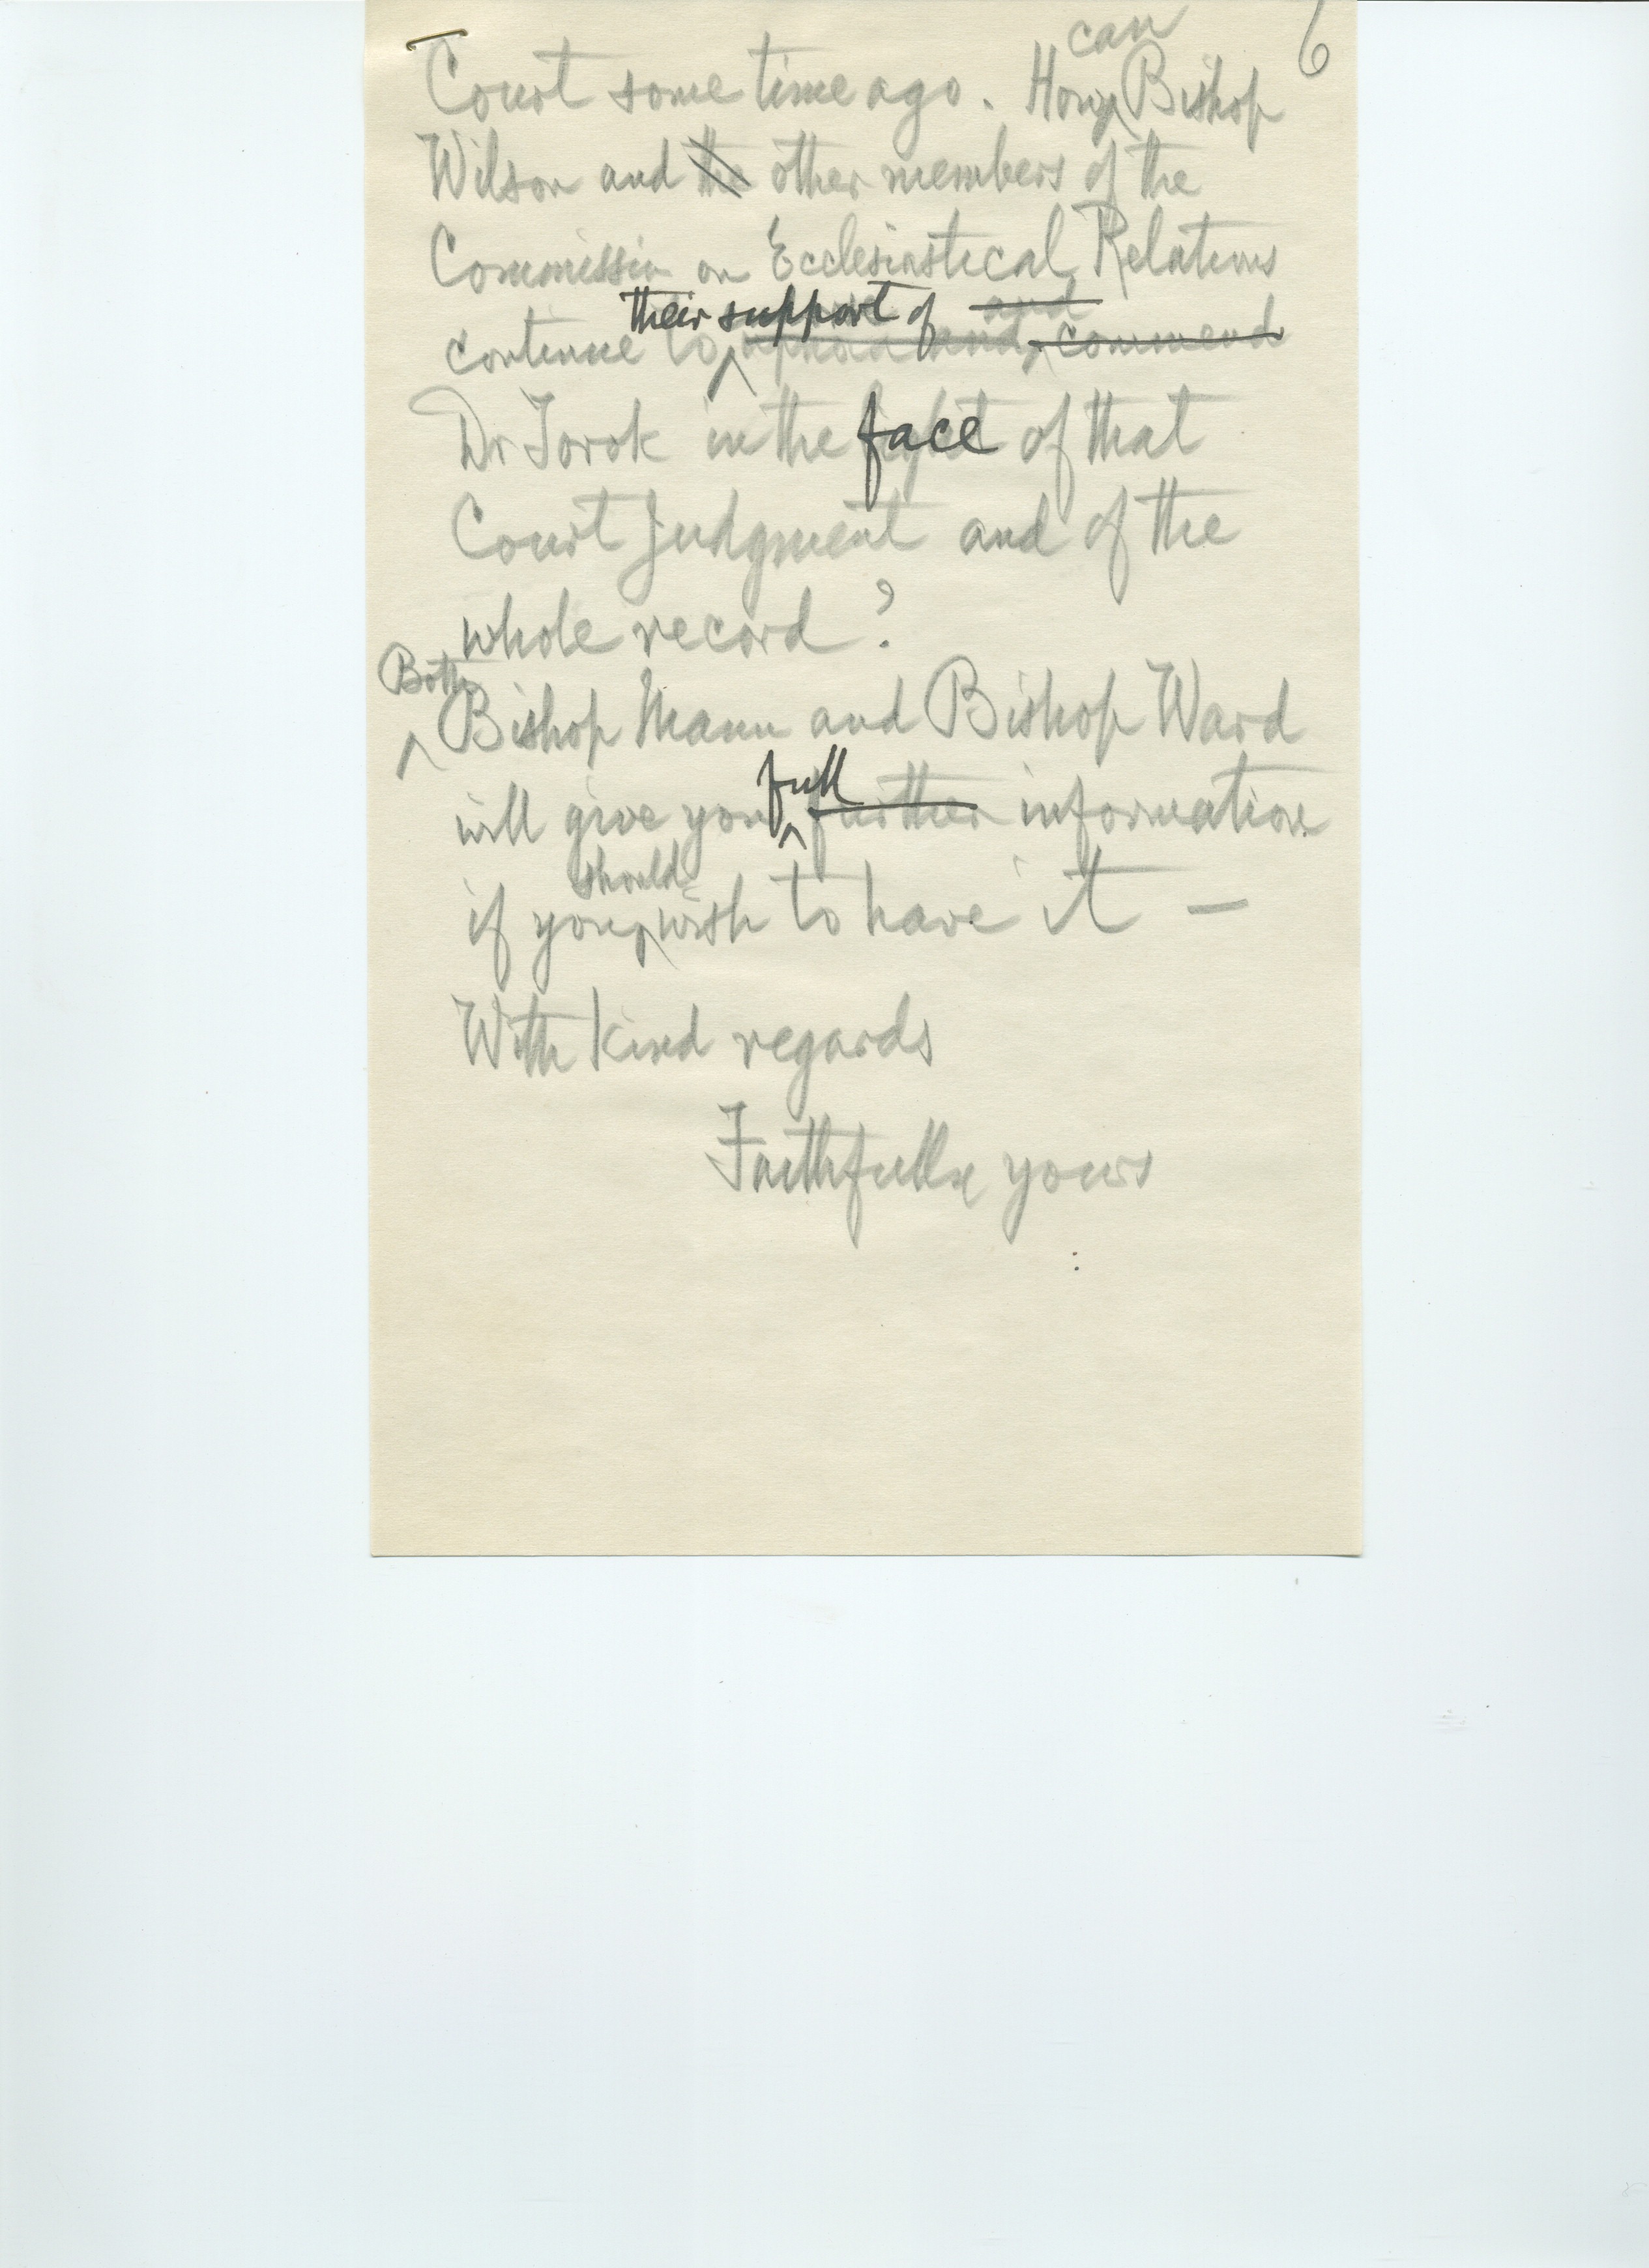 6
can
Court some time ago. How Bishop
Wilson and the other members of the
Commission on Ecclesiastical Relations
their support of and
continue to and commend
Dr Torok in the face of that
Court judgment and of the
whole record?
Both
Bishop Mann and Bishop Ward
full
will give you further information
should
if you wish to have it —
With kind regards
Faithfully yours